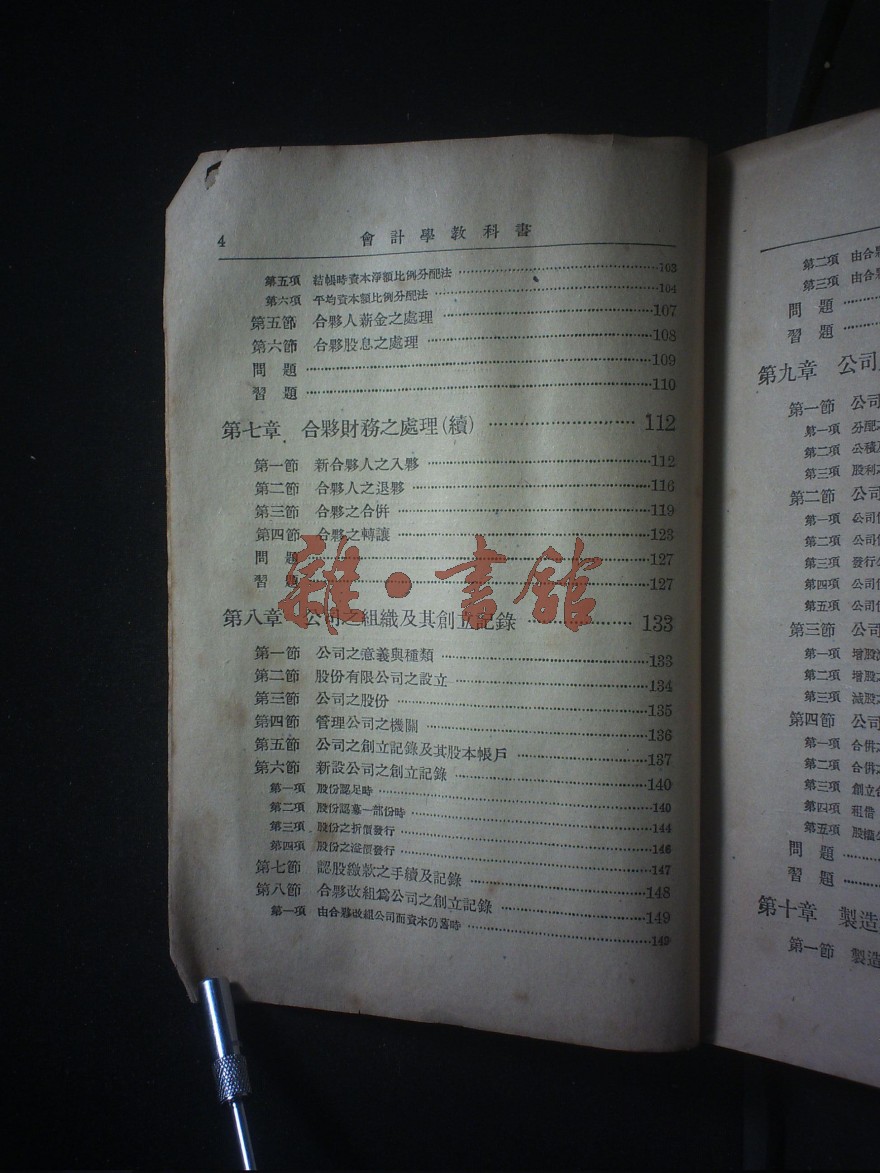 4 會計學教科書
第五項 結帳時資本淨額比例分配法 103
第六項 平均資本額比例分配法 104
第五節 合夥人薪金之處理 107
第六節 合夥股息之處理 108
問題 109
習題 110
第七章 合夥財務之處理(續) 112
第一節 新合夥人之入夥 112
第二節 合夥人之退夥 116
第三節 合夥之合併 119
第四節 合夥之轉讓 123
問題 127
習題 127
第八章 公司之組織及其創立記錄 133
第一節 公司之意義與種類 133
第二節 股份有限公司之設立 134
第三節 公司之股份 135
第四節 管理公司之機關 136
第五節 公司之創立記錄及其股本帳戶 137
第六節 新設公司之創立記錄 140
第一項 股份認足時 140
第二項 股份認募一部份時 144
第三項 股份之折價發行 146
第四項 股份之溢價發行 147
第七節 認股繳款之手續及記錄 148
第八節 合夥改組爲公司之創立記錄 149
第一項 由合夥改組公司而資本仍舊時 149
雜·書館
第二項 由合夥
第三項 由合夥
問題
習題
第九章 公司
第一節 公司
第一項 分配
第二項 公積
第三項 股利之
第二節 公司
第一項 公司
第二項 公司
第三項 發行
第四項 公司
第五項 公司
第三節 公司
第一項 增股
第二項 增股之
第三項 減股之
第四節 公司
第一項 合併之
第二項 合併之
第三項 創立
第四項 租借
第五項 股
問題
習題
第十章 製造
第一節 製造